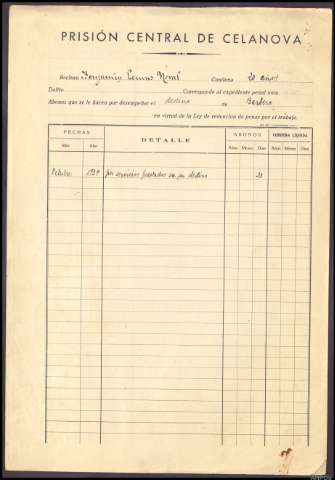 PRISIÓN CENTRAL DE CELANOVA
Recluso Benjamin Condena 20 años
Delito Corresponde al expediente penal núm.
Abonos que se le hacen por desempeñar el destino de Barbero
en virtud de la Ley de redención de penas por el trabajo.
FECHAS DETALLE ABONOS CONDENA LÍQUIDA
Mes Año Años Meses Días Años Meses Días
Octubre 1939 por servicios prestados en su destino